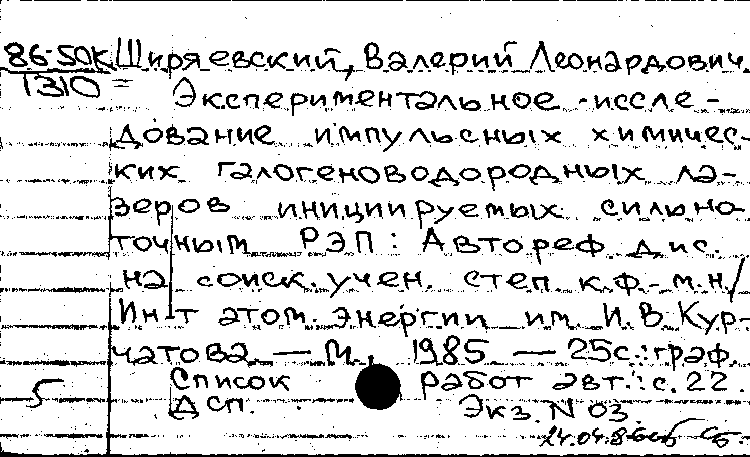 86-50К Ширяевский, Валерий Леонардович
1310 =
Экспериментальное иссле-
дование импульсных химичес-
ких галогеноводородных ла-
зеров инициируемых сильно-
точным РЭП: Автореф. дис.
на соиск. учен. степ. к.ф.-м.н/
Ин-т атом. энергии им. И.В. Кур-
чатова. — М., 1985. — 25с.: граф.
Список работ авт.: с. 22.
5 Дсп. Экз. N 03
24.04.86